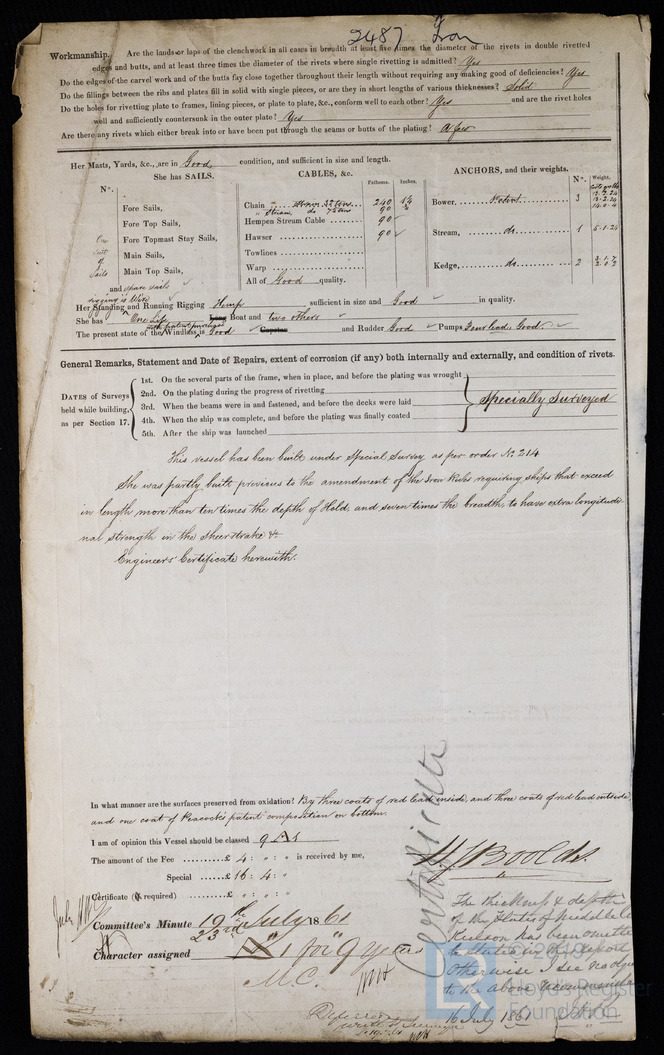 2487 Iron
Workmanship. Are the lands or laps of the clenchwork in all cases in breadth at least five times the diameter of the rivets in double rivetted
edges and butts, and at least three times the diameter of the rivets where single rivetting is admitted? Yes
Do the edges of the carvel work and of the butts fay close together throughout their length without requiring any making good of deficiencies? Yes
Do the fillings between the ribs and plates fill in solid with single pieces, or are they in short lengths of various thicknesses? Solid
Do the holes for rivetting plate to frames, lining pieces, or plate to plate, &c., conform well to each other? Yes and are the rivet holes
well and sufficiently countersunk in the outer plate? Yes
Are there any rivets which either break into or have been put through the seams or butts of the plating? A few
Her Masts, Yards, &c., are in Good condition, and sufficient in size and length.
She has SAILS.
N°.
Fore Sails,
Fore Top Sails,
Fore Topmast Stay Sails,
Main Sails,
Main Top Sails,
One Suit of Sails
and spare sails
CABLES, &c.
Fathoms. Inches.
Chain 240
" Stream 90
Hempen Stream Cable 90
Hawser 90
Towlines
Warp
All of Good quality.
ANCHORS, and their weights.
N°. Weight.
Bower, Patent 3
Stream, do 1 5.1.24
Kedge, do 2
rigging is Wire
Her Standing and Running Rigging Hemp sufficient in size and Good in quality.
She has One Life Long Boat and two others
with patent purchase
The present state of the Windlass is Good Capstan and Rudder Good Pumps Four lead, Good
General Remarks, Statement and Date of Repairs, extent of corrosion (if any) both internally and externally, and condition of rivets.
DATES of Surveys held while building, as per Section 17.
1st. On the several parts of the frame, when in place, and before the plating was wrought
2nd. On the plating during the progress of rivetting
3rd. When the beams were in and fastened, and before the decks were laid
4th. When the ship was complete, and before the plating was finally coated
5th. After the ship was launched
Specially Surveyed
This vessel has been built under Special Survey as per order No 214
She was partly built previous to the amendment of the Iron Rules requiring ships that exceed
in length more than ten times the depth of Hold, and seven times the breadth, to have extra longitudi-
nal strength in the sheerstrake &c
Engineers' Certificate herewith.
In what manner are the surfaces preserved from oxidation? By three coats of red lead inside, and three coats of red lead outside,
and one coat of Peacock's patent composition on bottom.
I am of opinion this Vessel should be classed 9 A 1
The amount of the Fee £ 4 : " : " is received by me,
Special £ 16 : 4 : "
Certificate (if required) £ " : " : "
H J Boolds.
Certificate
Committee's Minute 19th July 1861
23rd
Character assigned A 1 for 9 Years
M.C.
The thickness & depth
of the Plates of middle line
Keelson has been omitted
to be stated in the report
Otherwise I see no objection
to the above recommendation
16 July 1861
Deferred
Lloyd's Register
Foundation